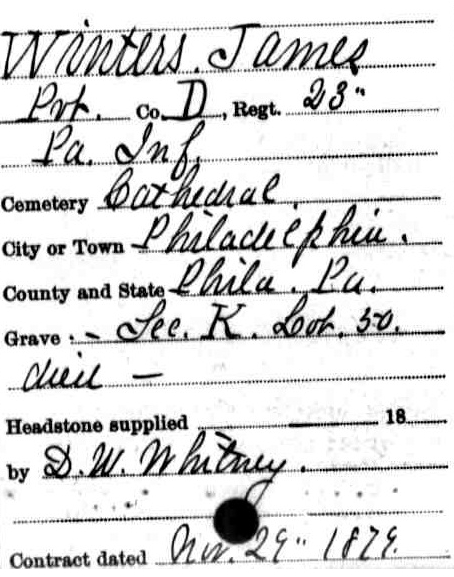 Winters. James
Pvt. Co. D, Regt. 23"
Pa. Inf.
Cemetery Cathedral.
City or Town Philadelphia.
County and State Phila. Pa.
Grave: - Sec. K. Lot. 50.
died —
Headstone supplied 18
by D. W. Whitney.
Contract dated Nov. 29" 1879.